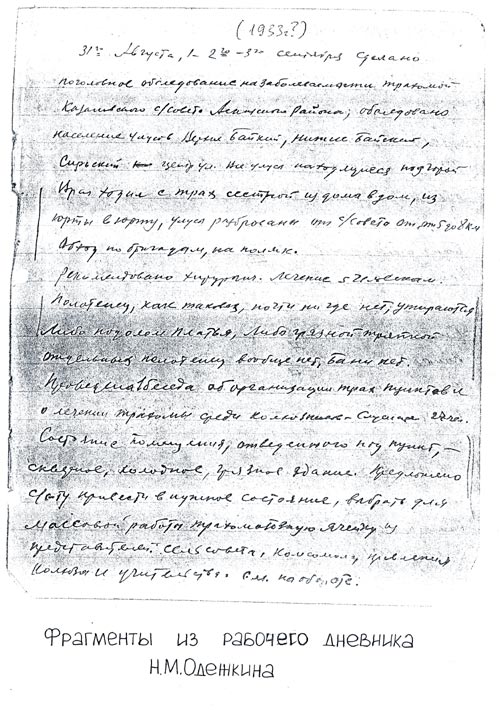 (1933г?)
31го Августа, 1- 2го -3го сентября сделано
поголовное обследование на заболеваемости трахомой
Казановского с/совета Аскизского Района; обследовано
население улусов Верхне Байкий, Нижне Байский,
Сирский центр ул. улус находящиеся под горой
Врач ходил с трах сестрой из дома в дом, из
юрты в юрту, улусы разбросаны от с/совета от 5 до 8 км
Обход по бригадам, на полях.
Рекомендовано хирургич. лечение 5 человекам.
Полотенец, как таковых, почти ни где нет, утираются
либо подолом платья, либо грязной тряпкой
отдельных полотенец вообще нет, бани нет.
Проведена беседа об организации трах пунктов и
о лечении трахомы среди колхозников
Состояние помещения, отведенного под пункт, –
сквозное, холодное, грязное здание. Предложено
с/сту привести в нужное состояние, выбрать для
массовой работы трахоматозную ячейку из
представителей сельсовета, комсомола, правления
колхоза и учительства. См. на обороте.
Фрагменты из рабочего дневника
Н.М.Одежкина